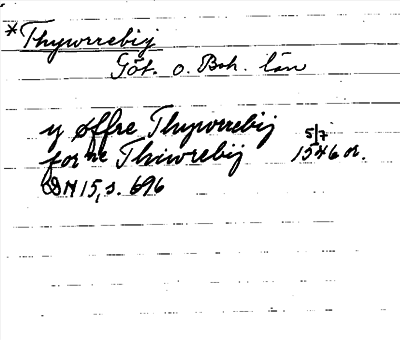 *Thywrrebij
Göt. o. Boh. län
y øffre Thywrrebij 5/7
forne Thiwrebij 1546 or.
DN 15, s. 696